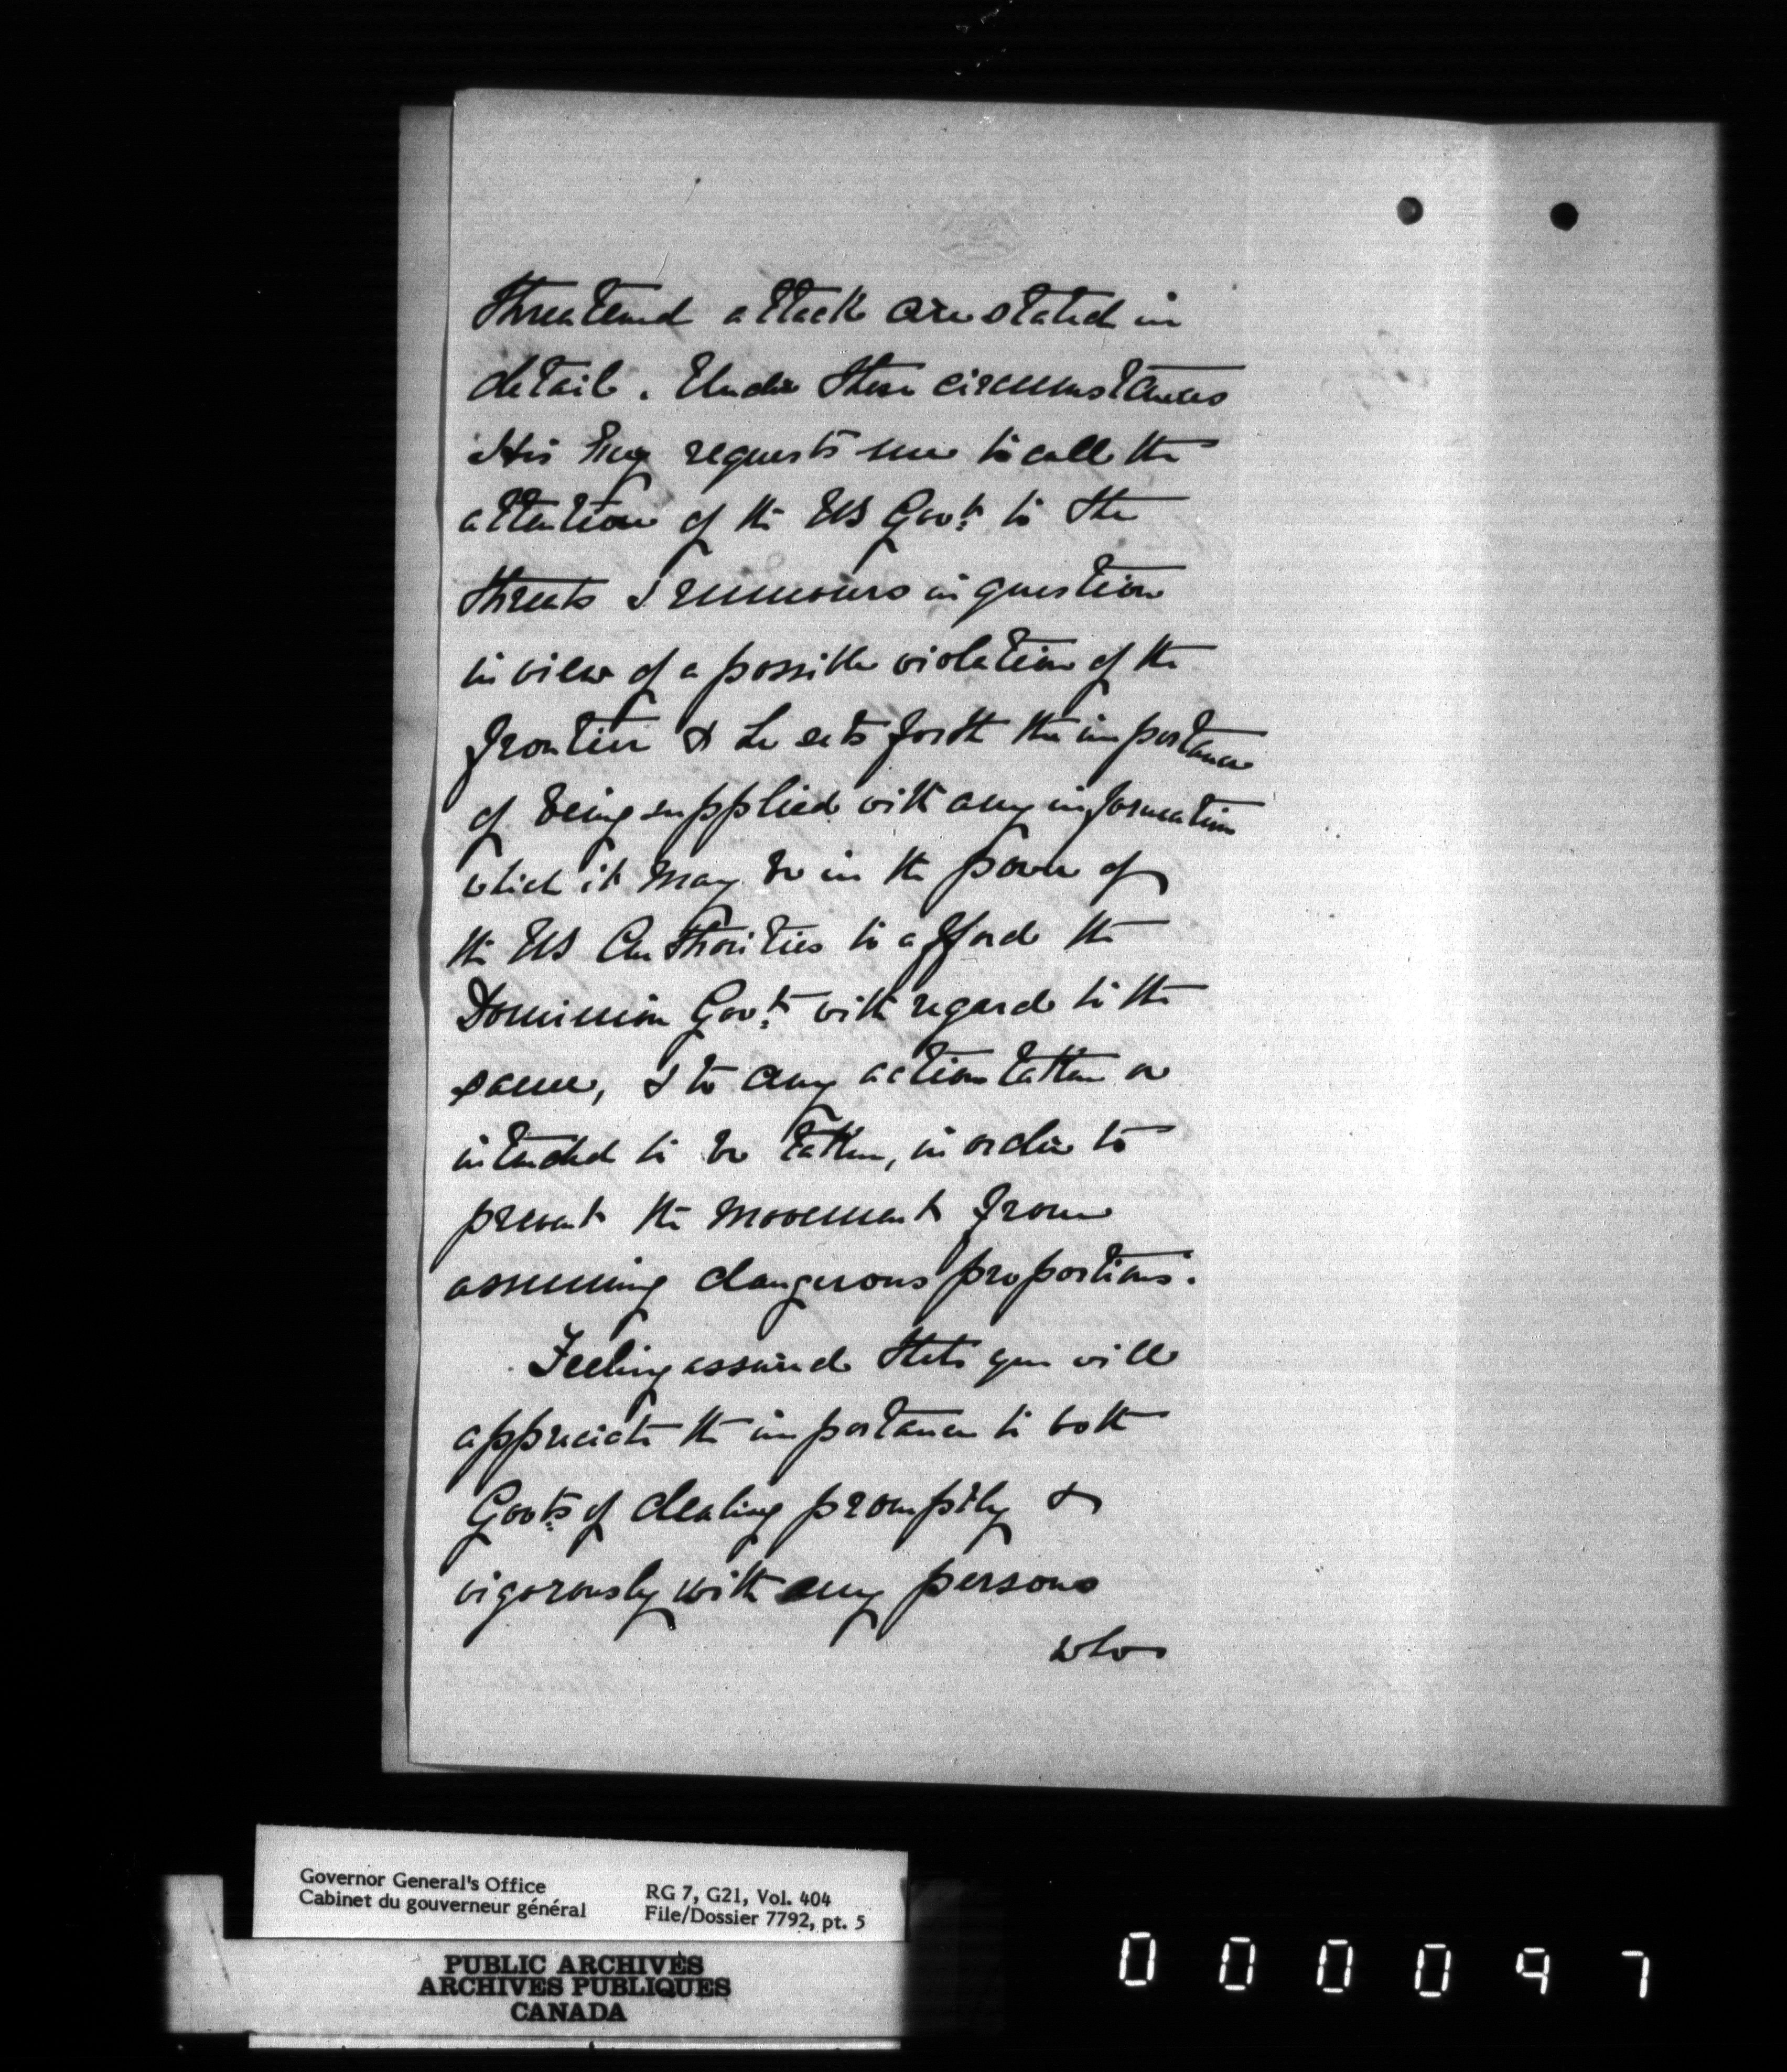 threatened attack are stated in
detail. Under these circumstances
His Exy requests me to call the
attention of the US Govt. to the
threats & rumours in question
in view of a possible violation of the
frontier & he sets forth the importance
of being supplied with any information
which it may be in the power of
the US Authorities to afford the
Dominion Govt. with regard to the
same, & to any action taken or
intended to be taken, in order to
prevent the movement from
assuming dangerous proportions.
Feeling assured that you will
appreciate the importance to both
Govts. of dealing promptly &
vigorously with any persons
who
Governor General's Office
Cabinet du gouverneur général
RG 7, G21, Vol. 404
File/Dossier 7792, pt. 5
PUBLIC ARCHIVES
ARCHIVES PUBLIQUES
CANADA
000097